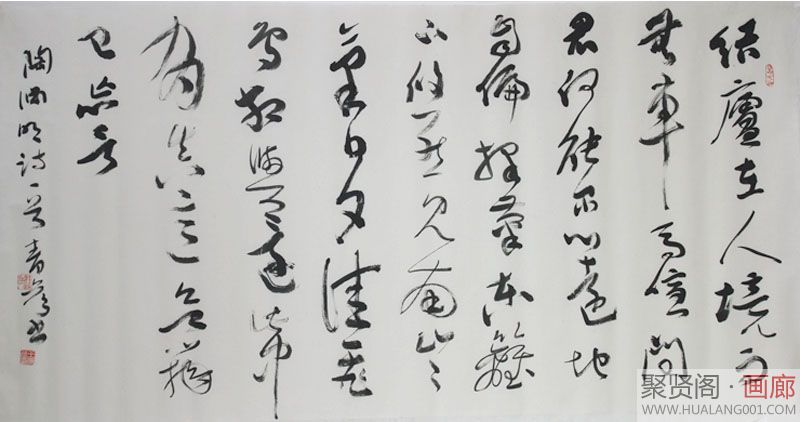 結廬在人境而
無車馬喧問
君何能尔心遠地
自偏採菊東籬
下悠然見南山々
氣日夕佳飛
鳥相與還此中
有真意欲辨
已忘言
陶淵明诗一首青书
聚贤阁·画廊
WWW.HUALANG001.COM